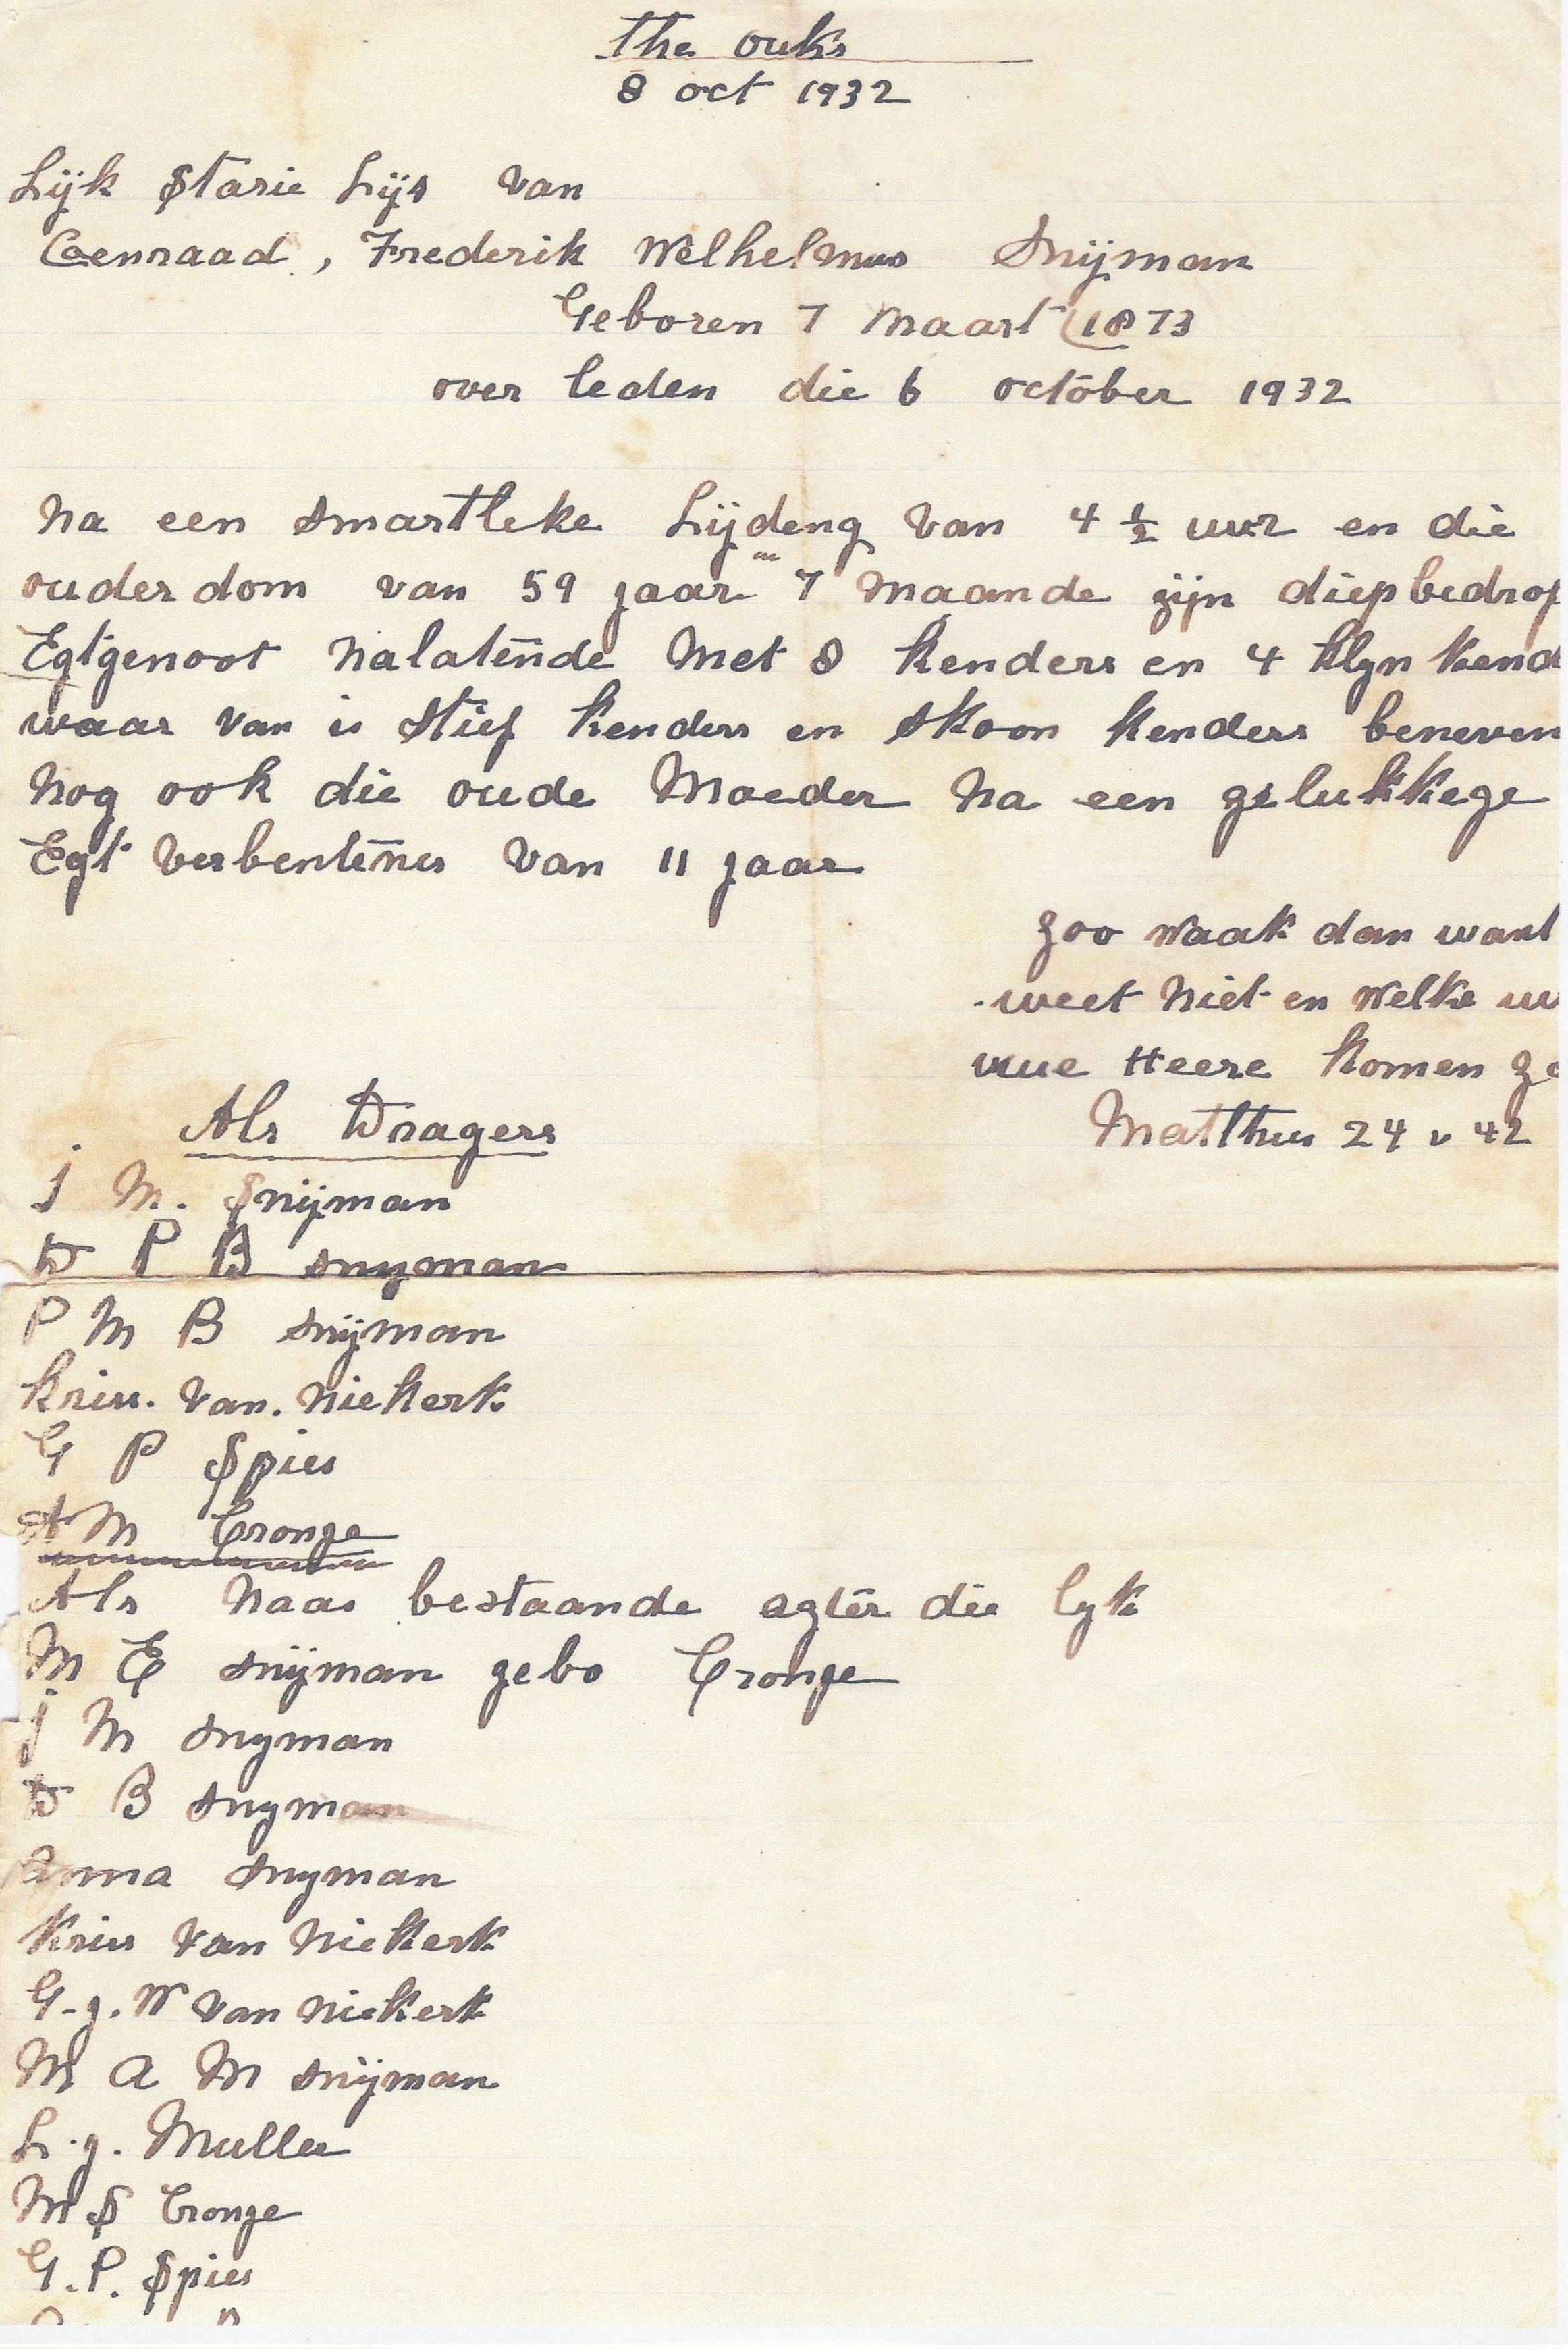 the ouks
8 oct 1932
Lijk Stasie Lijs van
Coenraad, Frederik Welhelmus Snijman
Geboren 7 Maart 1873
over leden die 6 october 1932
Na een smartleke Lijdeng van 4 1/2 uur en die
ouderdom van 59 jaar en 7 maande zijn diepbedrof
Egtgenoot Nalatende Met 8 kenders en 4 klyn kend
waar van is stief kenders en skoon kenders beneven
Nog ook die oude Moeder Na een gelukkege
Egt verbentenes van 11 jaar
zoo waak dan want
weet Niet en welke uu
uwe Heere komen zo
Matthus 24 v 42
Als Dragers
J M. Snijman
D P B snyman
P M B snijman
Krisu. van. Niekerk
G P Spies
A M Cronge
Als Naas bestaande agter die lyk
M E snijman gebo Cronge
J M snyman
D B snyman
Anna snyman
Kris van Niekerk
G-J. W van Niekerk
M A M snijman
L.J. Muller
M S Cronge
G. P. Spies